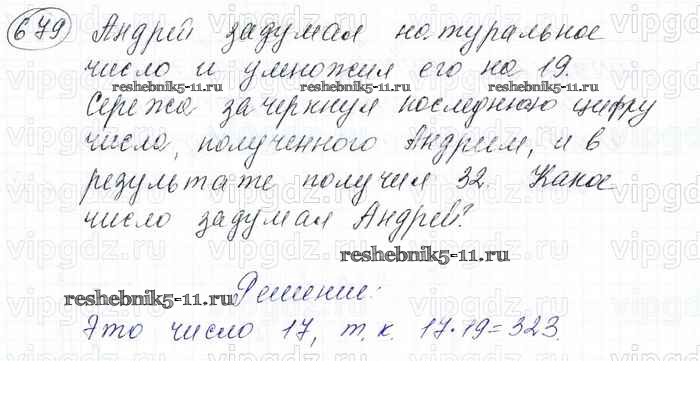 679 Андрей задумал натуральное
число и умножил его на 19.
reshebnik5-11.ru reshebnik5-11.ru
Сережа зачеркнул последнюю цифру
числа, полученного Андреем, и в
результате получил 32. Какое
число задумал Андрей?
reshebnik5-11.ru
reshebnik5-11.ru Решение:
Это число 17, т.к. 17·19=323.